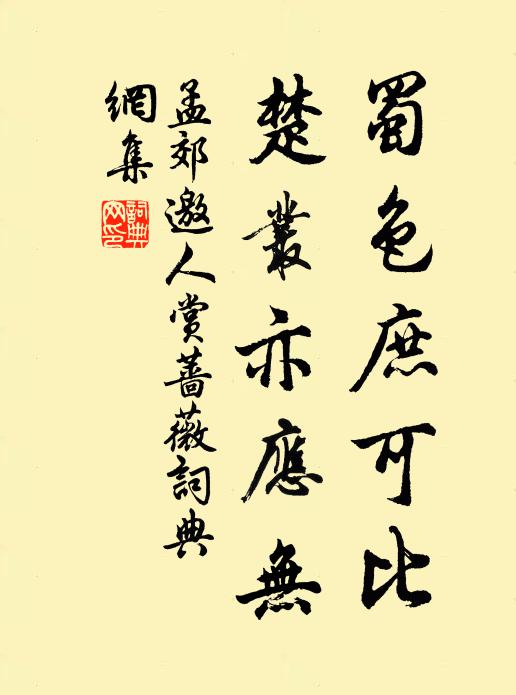 蜀色庶可比
楚叢亦應無
孟郊邀人賞薔薇詞典
網集
詞典網印